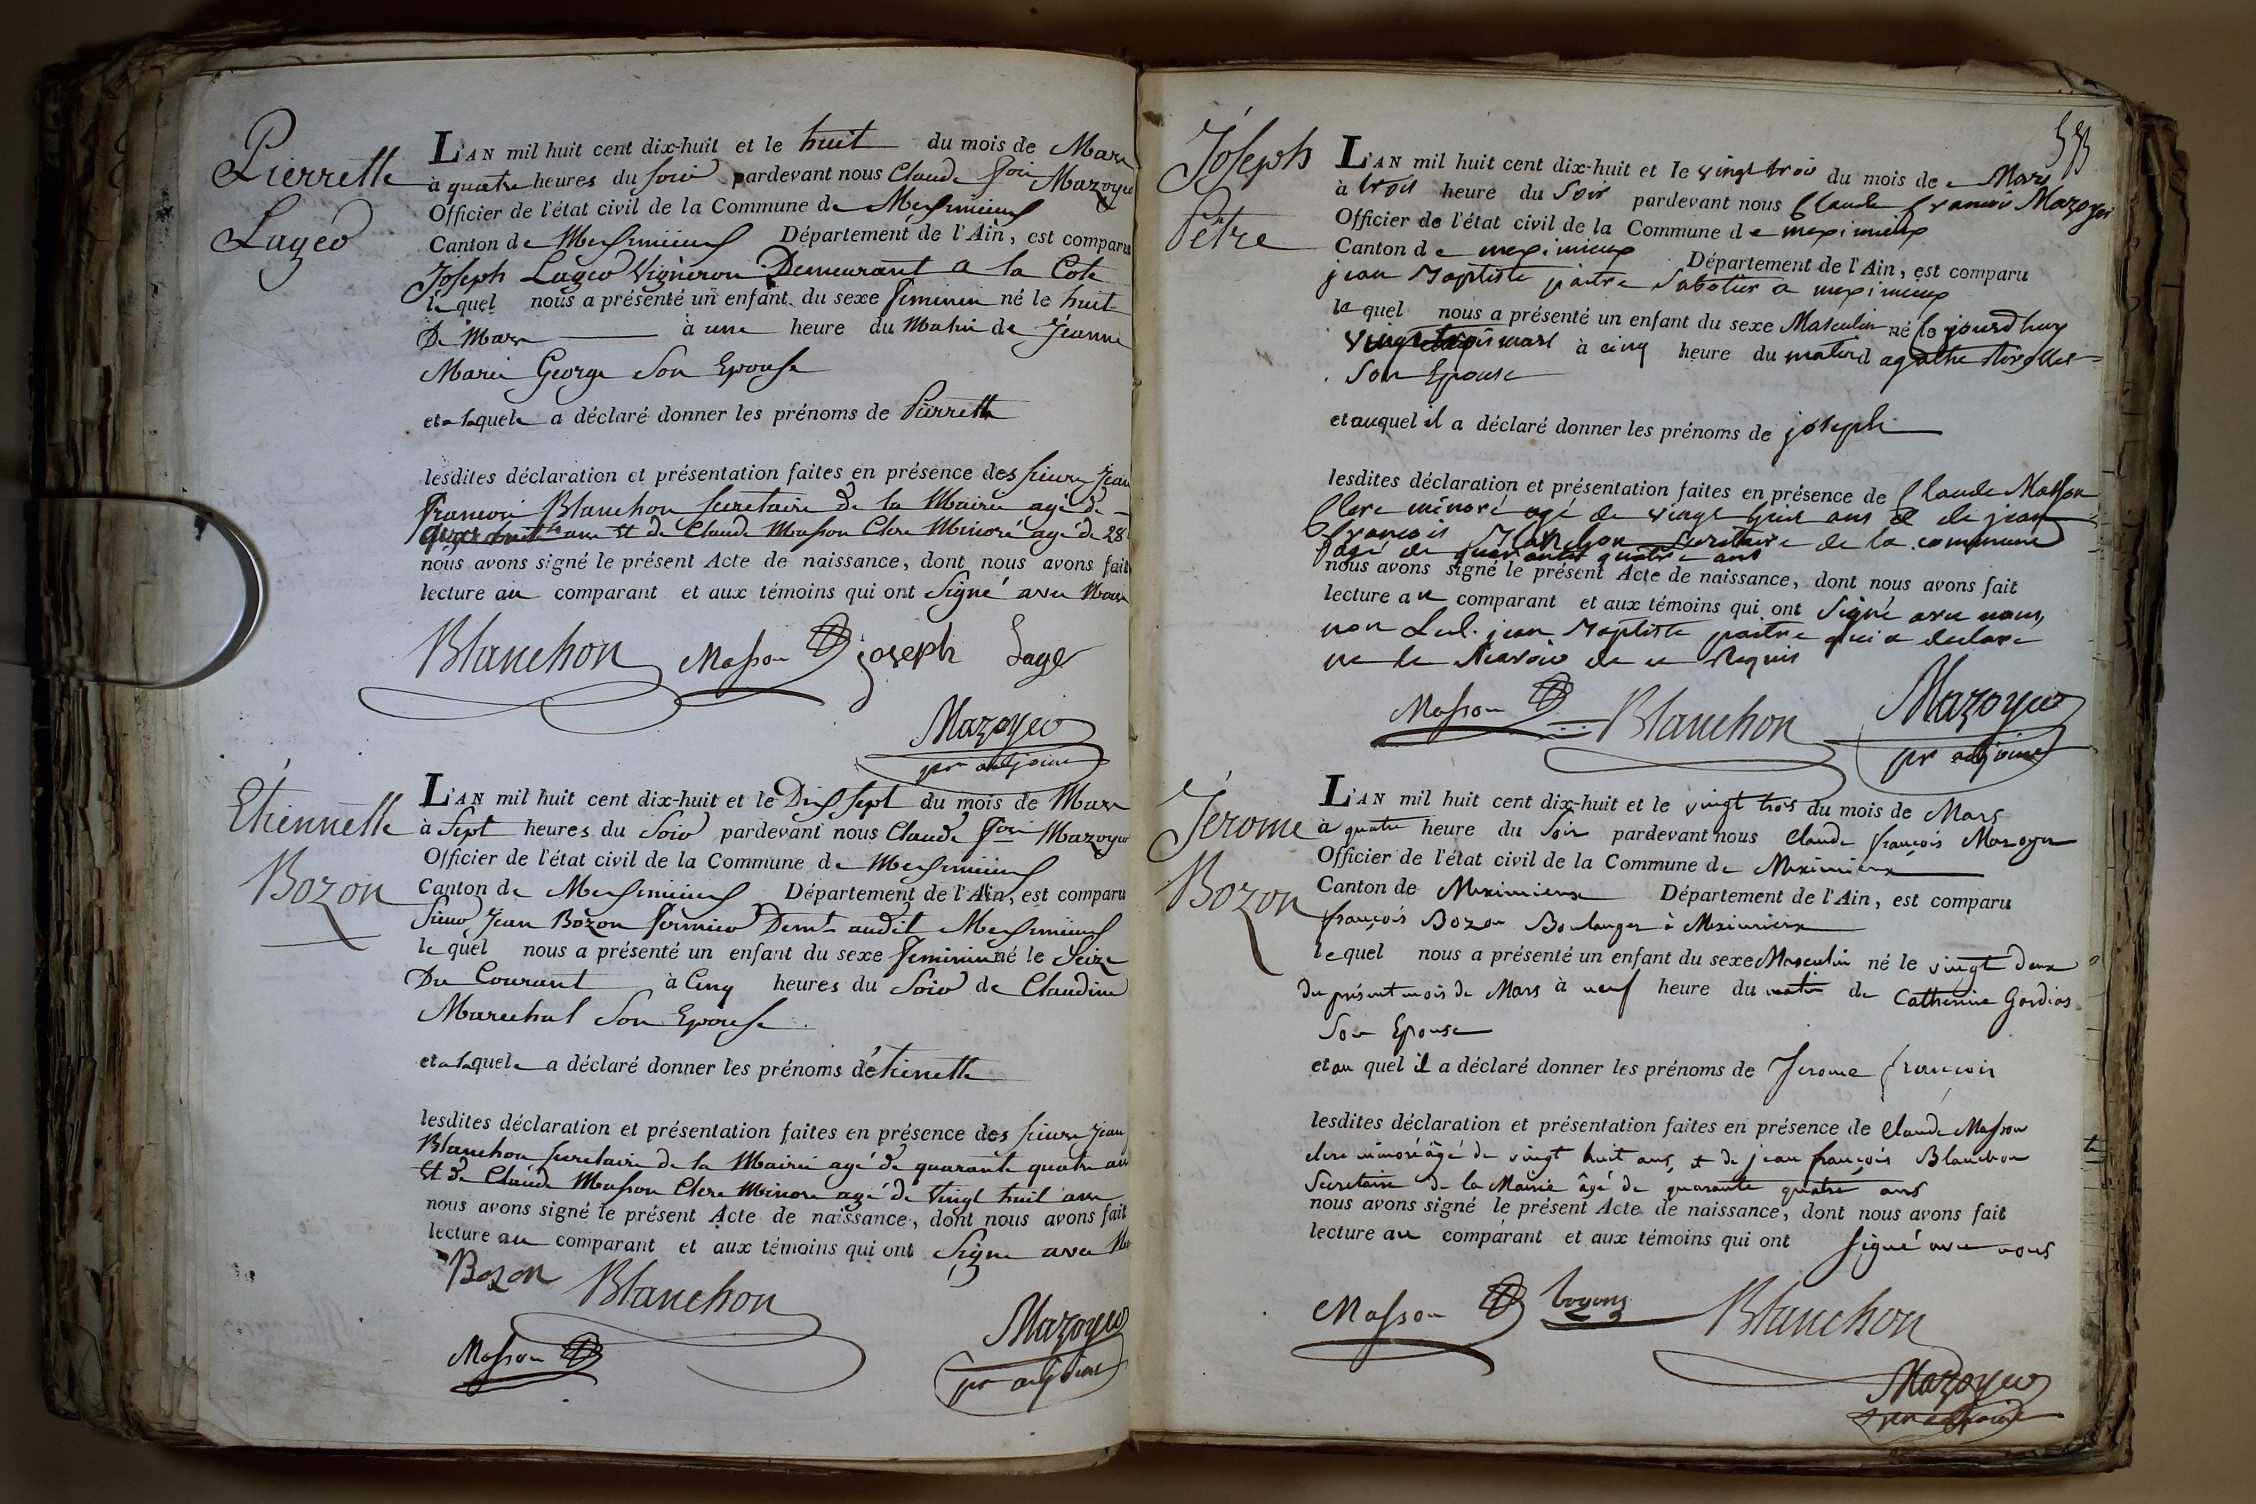 Pierrette
Lager
L'AN mil huit cent dix-huit et le huit du mois de Mars
à quatre heures du soir pardevant nous Claude fois Mazoyer
Officier de l'état civil de la Commune de Meximieux
Canton de Meximieux Département de l'Ain, est comparu
Joseph Lager Vigneron Demeurant a la Cote
le quel nous a présenté un enfant du sexe feminin né le huit
De Mars à une heure du Matin de Jeanne
Marie George Son Epouse
et a laquele a déclaré donner les prénoms de Pierrette
lesdites déclaration et présentation faites en présence des sieurs Jean
francois Blanchon Secretaire de la Mairie agé de
ans Et de Claude Masson Clerc Minoré agé de 28
nous avons signé le présent Acte de naissance, dont nous avons fait
lecture au comparant et aux témoins qui ont Signé avec Nous
Blanchon Masson joseph Lager
Mazoyer
pr adjoint
Etiennette
Bozon
L'AN mil huit cent dix-huit et le Dix sept du mois de Mars
à Sept heures du Soir pardevant nous Claude fois Mazoyer
Officier de l'état civil de la Commune de Meximieux
Canton de Meximieux Département de l'Ain, est comparu
Sieur Jean Bozon fermier Demt audit Meximieux
le quel nous a présenté un enfant du sexe feminin né le Seize
Du Courant à Cinq heures du Soir de Claudine
Marechal Son Epouse
et a laquele a déclaré donner les prénoms d'étienette
lesdites déclaration et présentation faites en présence des sieurs Jean
Blanchon Secretaire de la Mairie agé de quarante quatre ans
Et de Claude Masson Clerc Minore agé de Vingt huit ans
nous avons signé le présent Acte de naissance, dont nous avons fait
lecture au comparant et aux témoins qui ont Signe avec
Bozon Blanchon
Masson
Mazoyer
pr adjoint
Joseph
Pêtre
L'AN mil huit cent dix-huit et le vingt trois du mois de Mars
à trois heure du Soir pardevant nous Claude francois Mazoyer
Officier de l'état civil de la Commune de meximieux
Canton de meximieux Département de l'Ain, est comparu
jean Baptiste paitre Sabotier a meximieux
le quel nous a présenté un enfant du sexe Masculin né le jourdhuy
vingt trois mars à cinq heure du matin d agathe
Son Epouse
et auquel il a déclaré donner les prénoms de joseph
lesdites déclaration et présentation faites en présence de Claude Masson
Clerc minoré agé de vingt huit ans et de jean
francois Blanchon Secritaire de la commune
agé de quarante quatre ans
nous avons signé le présent Acte de naissance, dont nous avons fait
lecture au comparant et aux témoins qui ont Signé avec nous,
non Led. jean Baptiste paitre qui a declare
ne le Scavoir de ce Requis
Masson Blanchon Mazoyer
pr adjoint
Jérome
Bozon
L'AN mil huit cent dix-huit et le vingt trois du mois de Mars
à quatre heure du Soir pardevant nous Claude françois Mazoyer
Officier de l'état civil de la Commune de Meximieux
Canton de Meximieux Département de l'Ain, est comparu
françois Bozon Boulanger à Meximieux
le quel nous a présenté un enfant du sexe Masculin né le vingt deux
du présent mois de Mars à neuf heure du matin de Catherine Gordias
Son Epouse
et au quel il a déclaré donner les prénoms de Jerome françois
lesdites déclaration et présentation faites en présence de Claude Masson
clerc minoré âgé de vingt huit ans, et de jean françois Blanchon
Secretaire de la Mairie âgé de quarante quatre ans
nous avons signé le présent Acte de naissance, dont nous avons fait
lecture au comparant et aux témoins qui ont signé avec nous
Masson Blanchon
Mazoyer
pr adjoint